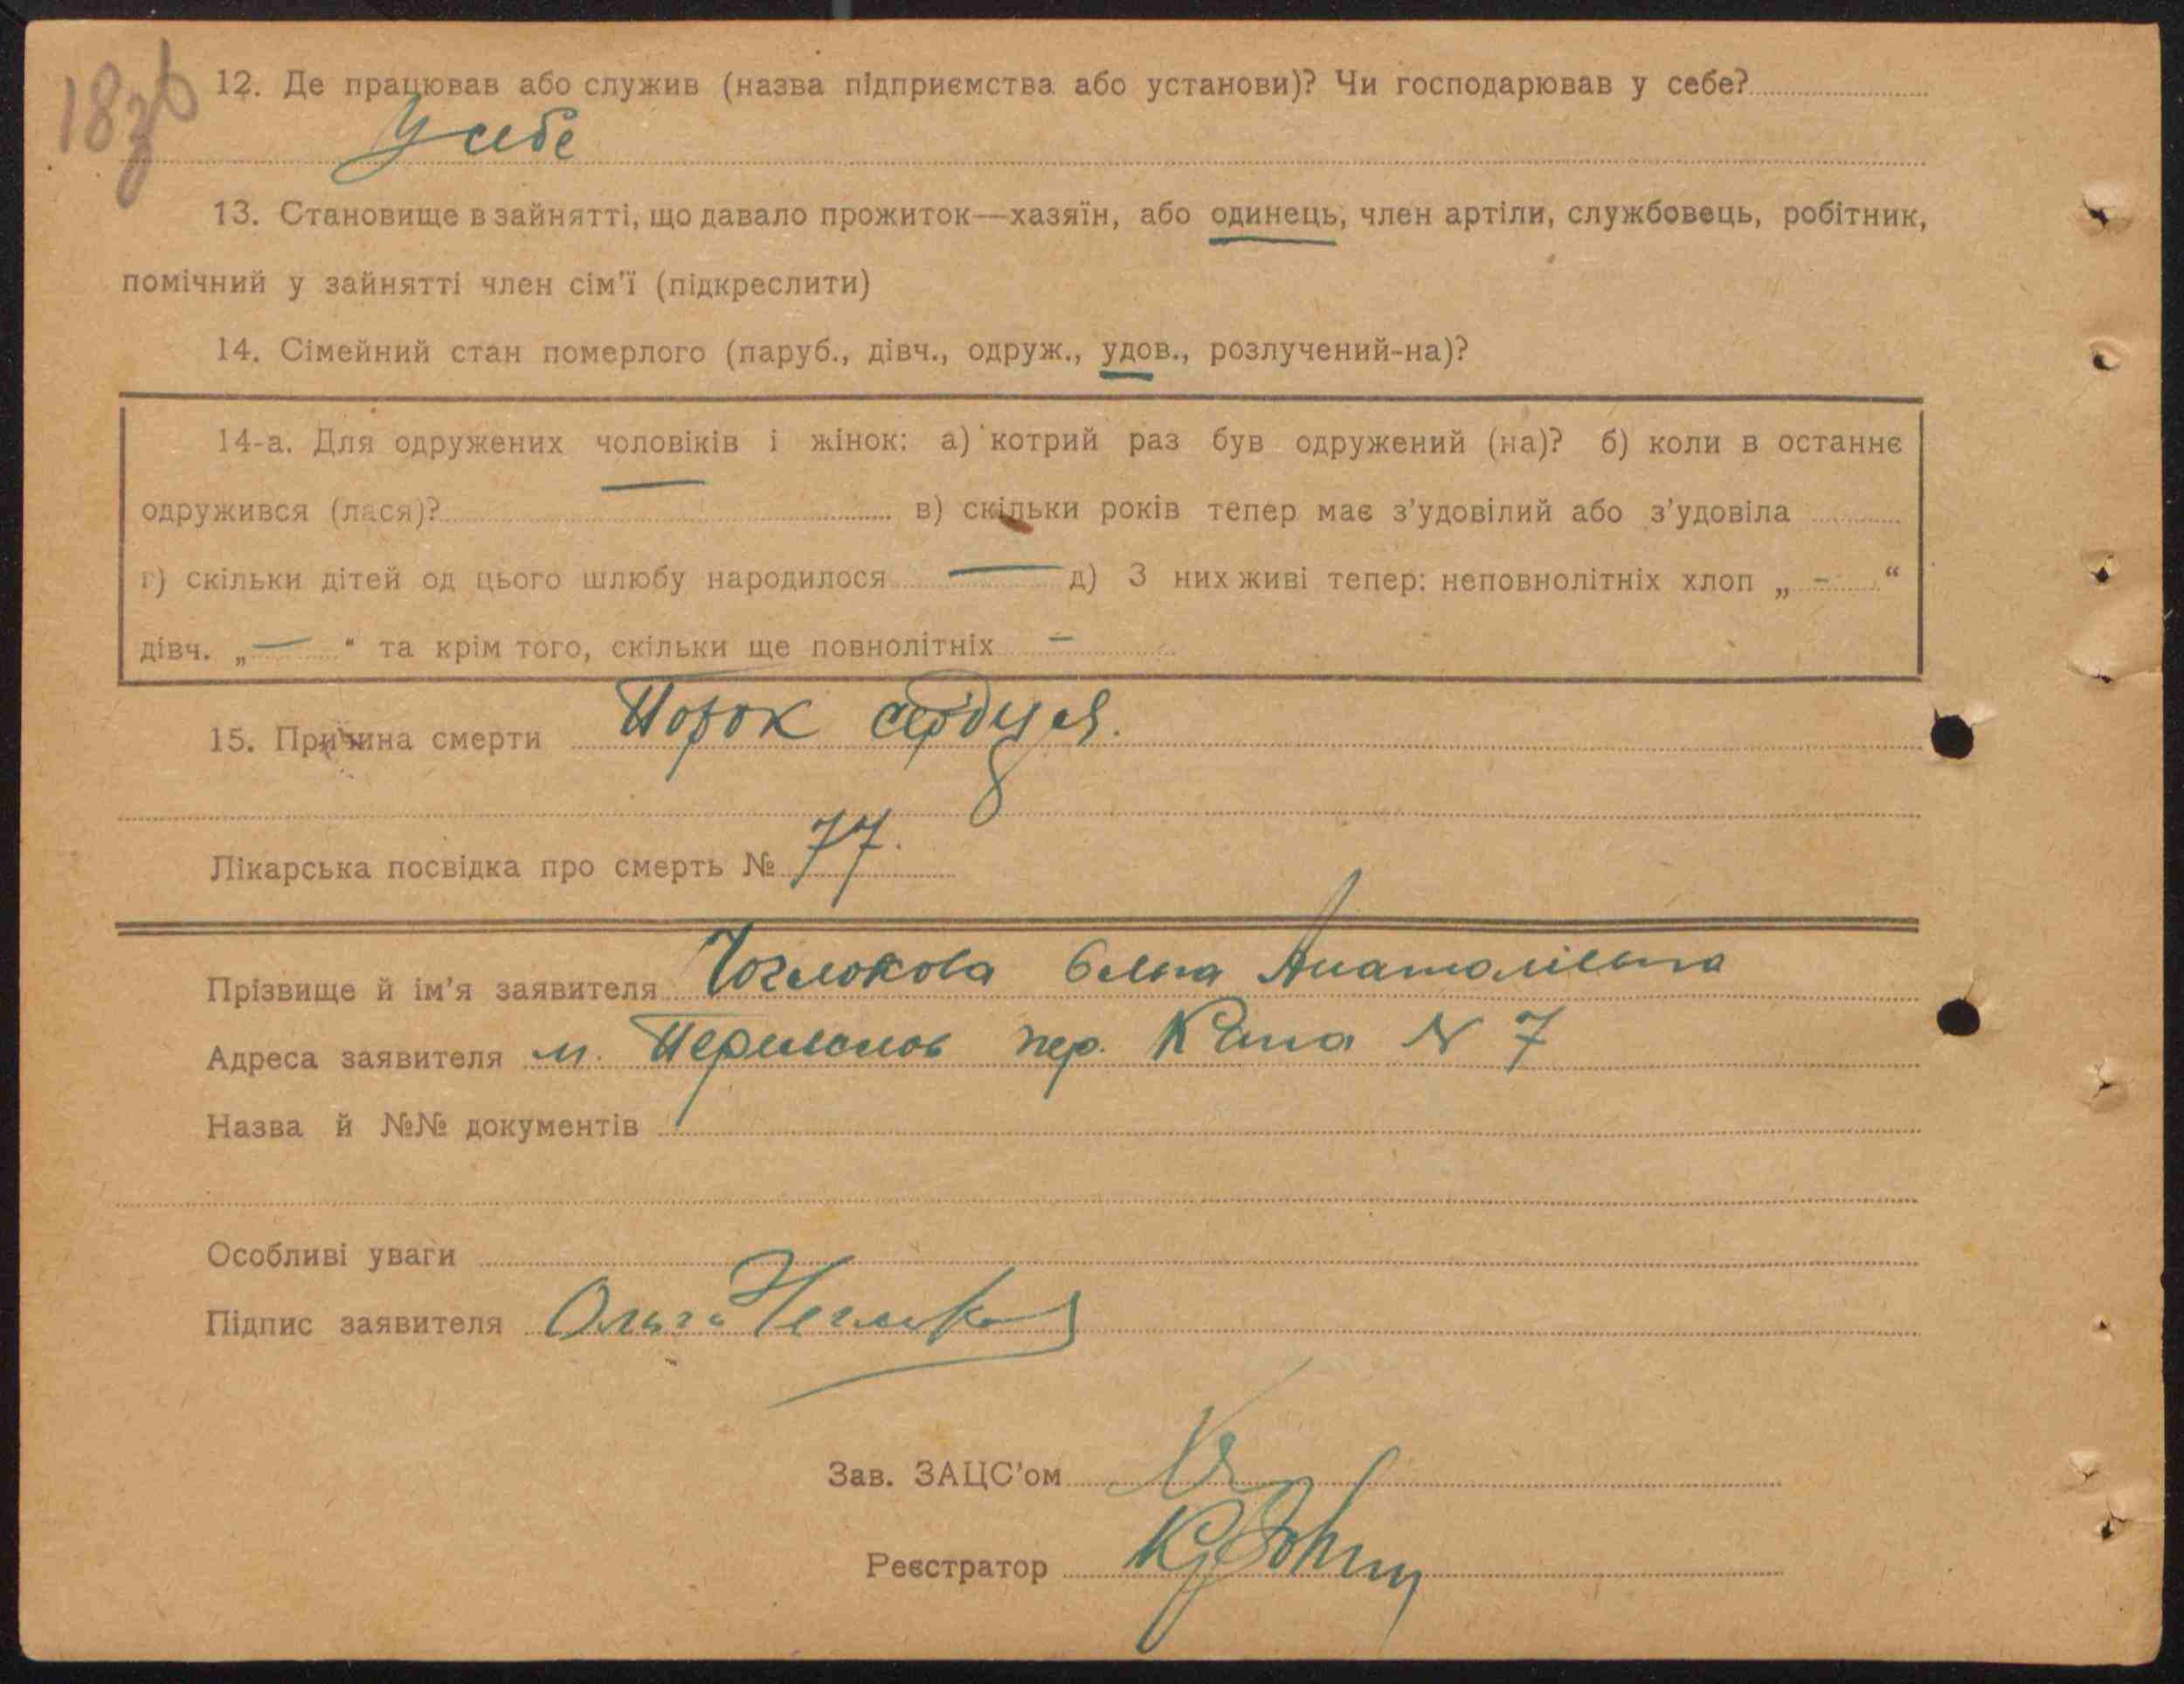 12. Де працював або служив (назва підприємства або установи)? Чи господарював у себе?
У себе
13. Становище в зайнятті, що давало прожиток—хазяїн, або одинець, член артіли, службовець, робітник,
помічний у зайнятті член сім'ї (підкреслити)
14. Сімейний стан померлого (паруб., дівч., одруж., удов., розлучений-на)?
14-а. Для одружених чоловіків і жінок: а) котрий раз був одружений (на)? б) коли в останнє
одружився (лася)? — в) скільки років тепер має з'удовілий або з'удовіла
г) скільки дітей од цього шлюбу народилося — д) З них живі тепер: неповнолітніх хлоп „ - “
дівч. „ — “ та крім того, скільки ще повнолітніх -
15. Причина смерти Порок сердця.
Лікарська посвідка про смерть № 77.
Прізвище й ім'я заявителя Чоглокова Анатоліівна
Адреса заявителя м. пер. N 7
Назва й №№ документів
Особливі уваги
Підпис заявителя Ольга
Зав. ЗАЦС'ом
Реєстратор